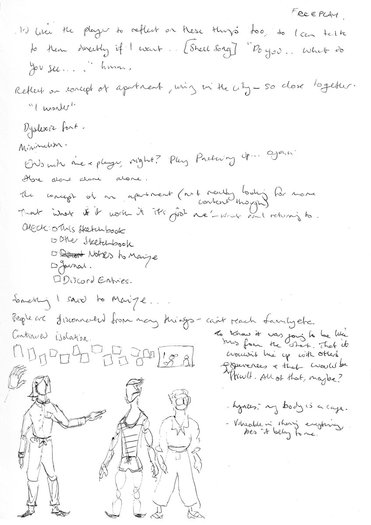 FREEPLAY.
I'd like the player to reflect on these things too, so I can talk
to them directly if I want.. [Shell Song] "Do you.. what do
you see....." hmm.
Reflect on concept of apartment, living in the city – so close together.
"I wonder"
Dyslexic font.
Minimalism.
Ends with me & player, right? Play Packing up... again
alone alone alone.
The concept of an apartment (not really looking for more
content though)
That what if it work it it's just me - what am I returning to.
Check: □ This Sketchbook
□ Other Sketchbook
□ Notes to
□ Journal.
□ Discord Entries.
Something I said to
People are disconnected from many things - can't reach family etc.
Continued isolation
to know it was going to be like
this from the start. That it
would line me up with other
experiences & that would be
difficult. All of that, maybe?
- my body is a cage.
- Vulnerable in sharing everything